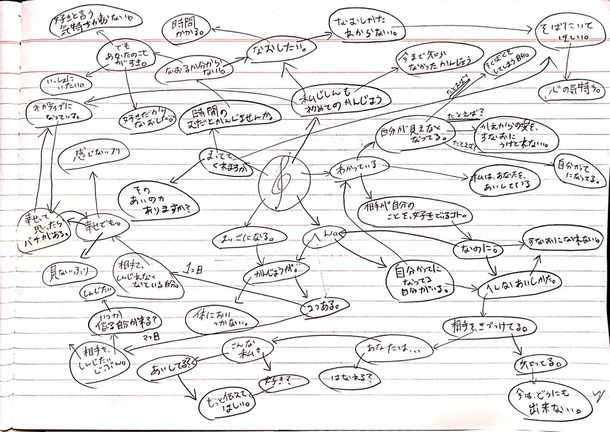 好きと言う
気持ちが分ない。
時間
かかる。
なおしかた
わからない。
そばにいて
ほしい。
でも
あなたのことが
すき。
なおしたい。
今まで知ら
なかったかんじょう
いっしょに
いたい。
なおるか分からない。
心の気持ち。
ネガティブに
なっている。
好きだから
なおしたい。
時間の
むだとかんじませんか。
私じしんも
初めてのかんじょう
自分が見えなく
なってる。
たとえば?
かれからの愛を、
すなおに
うけとれない。
感じないフリ
まってて
くれますか
わかっている
私は、あなたを、
あいしている
自分かって
になってる。
その
あいのカ
ありますか?
相手が自分の
ことを、好きでいるコト。
幸せって
思ったら
バチがある。
幸せでも。
まいごになる。
へん。
なのに。
すなおになれない。
見ないふり
相手を、
しんじれなく
なている自分。
1つ目
かんじょうが。
自分かてに
なってる
自分がいる。
しんじたい
いつか
信る日が来る?
体においつかない。
2つある。
2つ目
相手を、きづつけてる。
相手を、
しんじたい
じぶん。
あいしてる?
こんな
私を
あなたは...
知ってる。
好き?
はなれる?
もっと伝えて
ほしい。
今は、どうにも
出来ない。